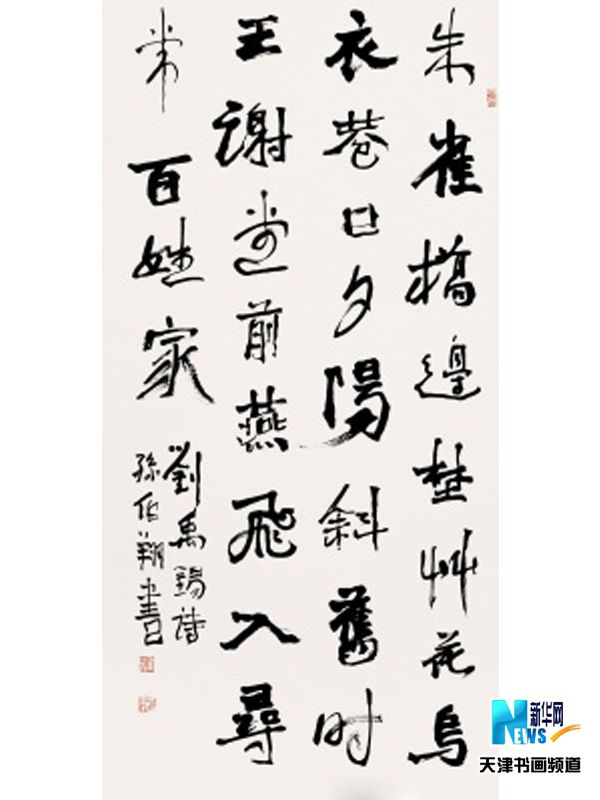 朱雀橋邊埜艸花烏
衣巷口夕陽斜舊时
王謝堂前燕飛入尋
常百姓家
劉禹錫詩
孫伯翔書
新华网
NEWS
天津书画频道